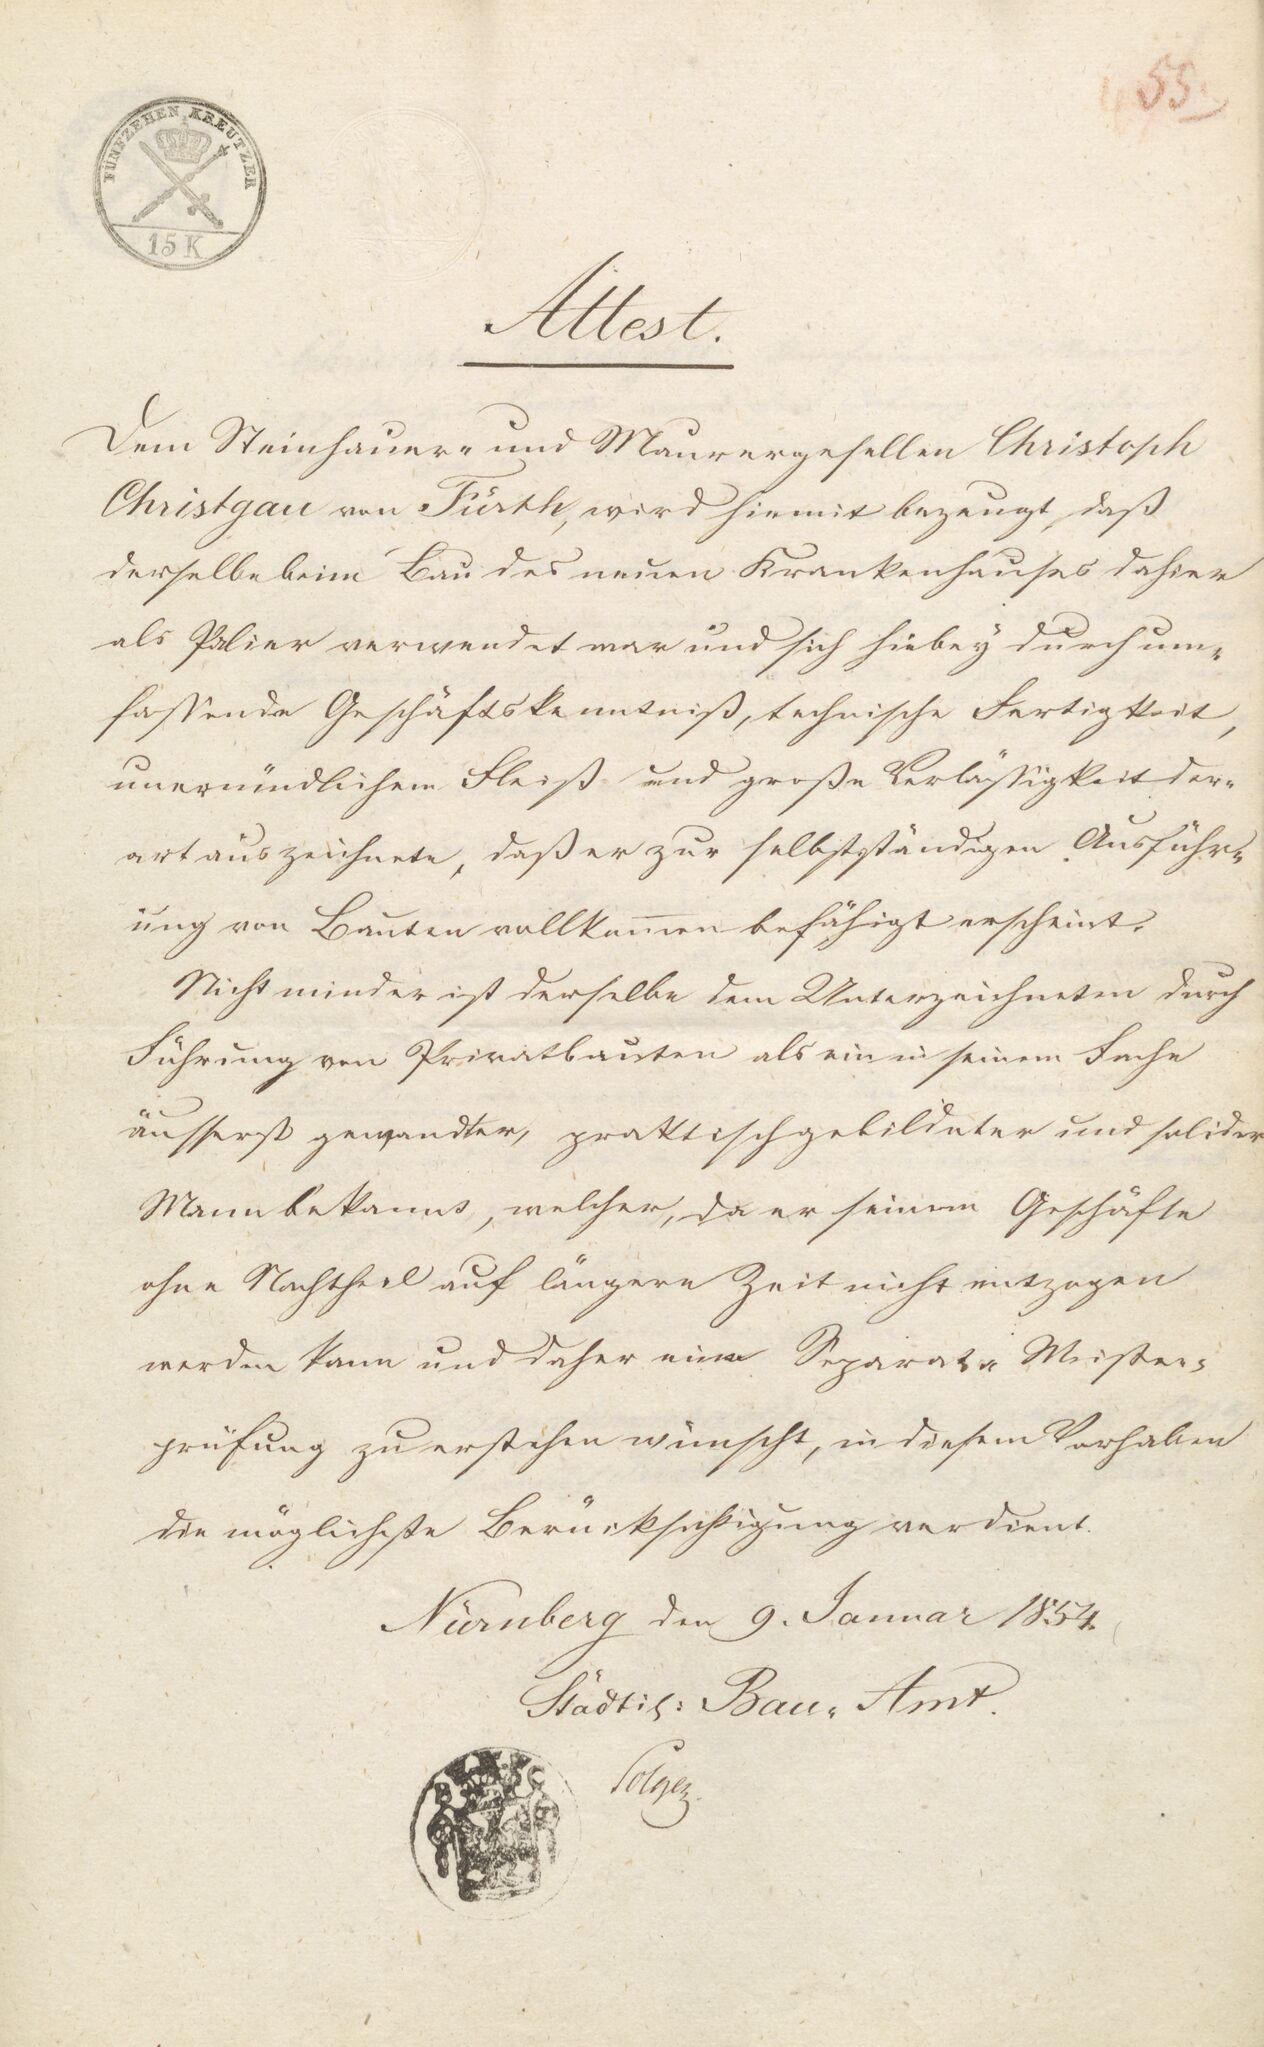 55.
FÜNFZEHEN KREUTZER
15 K
Attest.
Dem Steinhauer- und Maurergesellen Christoph
Christgau von Fürth, wird hiemit bezeugt, daß
derselbe beim Bau des neuen Krankenhauses dahier
als Palier verwendet war und sich hiebey durch um-
fassende Geschäftskenntniß, technische Fertigkeit,
unermüdlichem Fleiß und große Verläßigkeit der-
art auszeichnete, daß er zur selbstständigen Ausführ-
ung von Bauten vollkommen befähigt erscheint.
Nicht minder ist derselbe dem Unterzeichneten durch
Führung von Privatbauten als ein in seinem Fache
äusserst gewandter, praktisch gebildeter und solider
Mann bekannt, welcher, da er seinem Geschäfte
ohne Nachtheil auf längere Zeit nicht entzogen
werden kann und daher eine Separat- Meister-
prüfung zu erstehen wünscht, in diesem Vorhaben
die möglichste Berücksichtigung verdient.
Nürnberg den 9. Januar 1854.
Städtis: Bau- Amt.
Solger